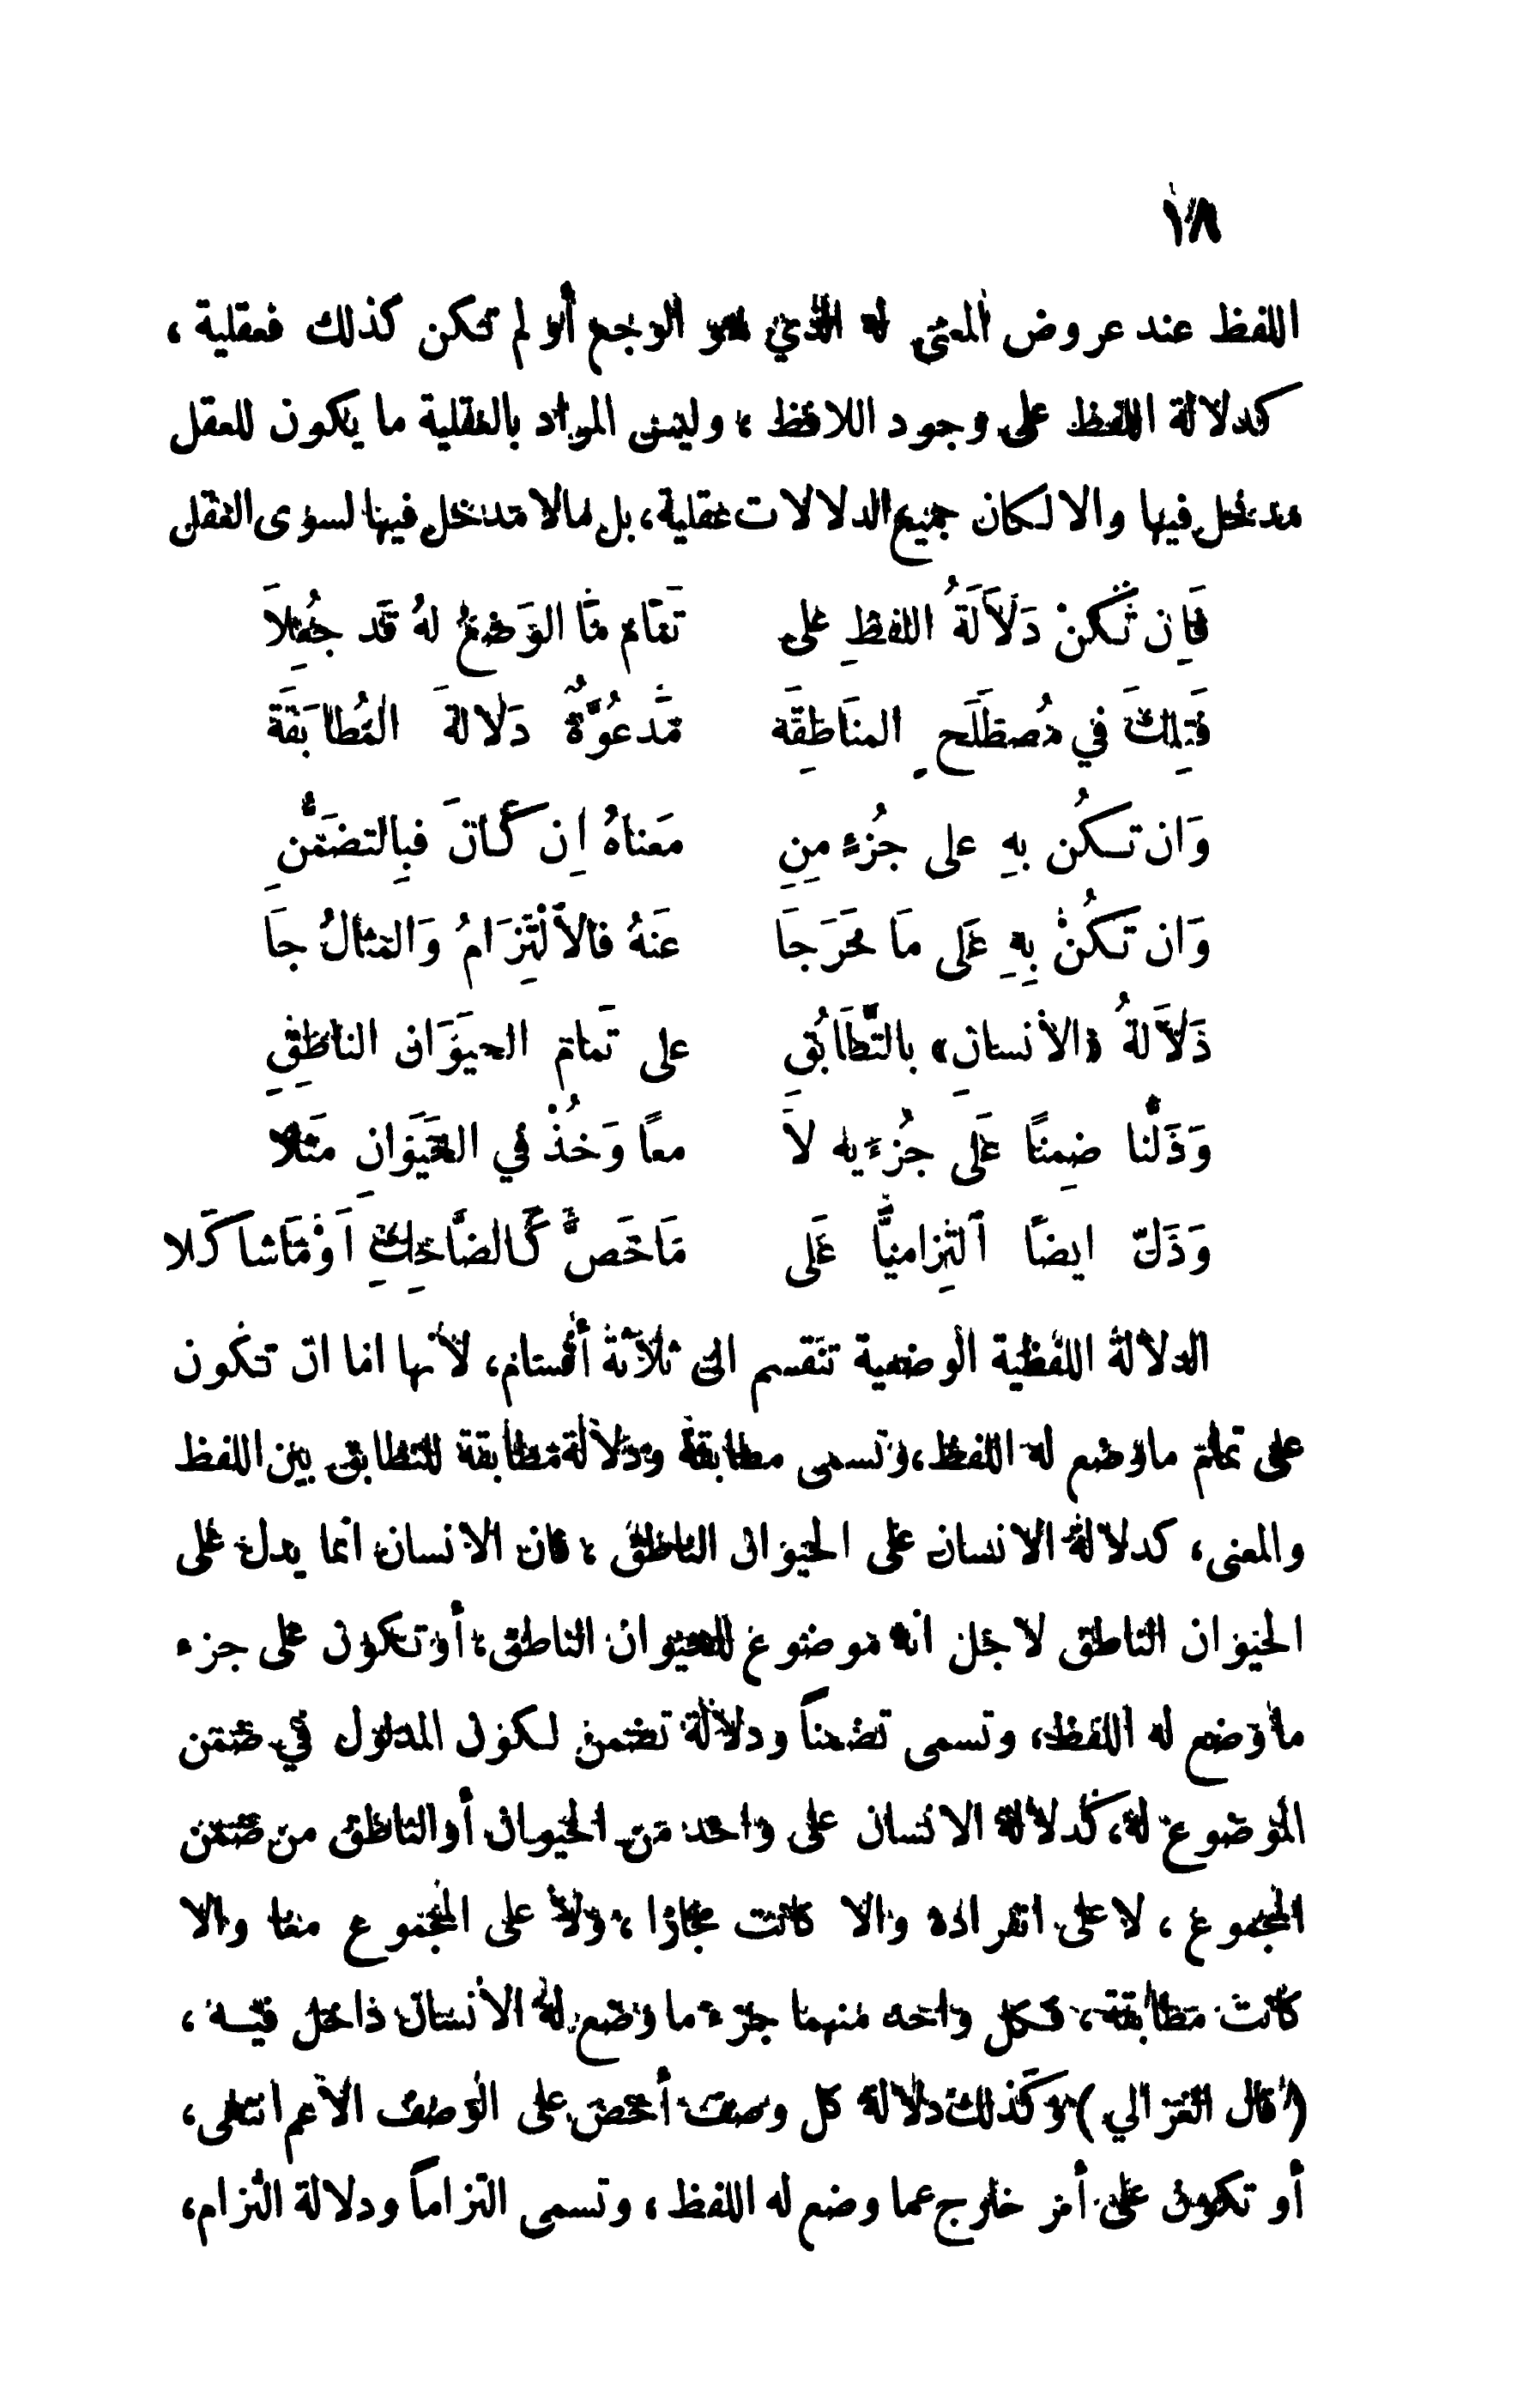 ١٨
اللفظ عند عروض المعنى له الذي هو الوجع أو لم تكن كذلك فعقلية ،
كدلالة اللفظ على وجود اللافظ ، وليس المراد بالعقلية ما يكون للعقل
مدخل فيها والا لكان جميع الدلالات عقلية ، بل مالا مدخل فيها لسوى العقل
فَاِن تَكُنْ دَلَالَةُ اللفظِ على تَمَام مَا الوَضعُ لهُ قَد جُعِلاَ
فَتِلكَ في مُصطَلَحِ المنَاطِقَه مَدعُوَّةٌ دَلالةَ المُطابَقَة
وَان تكُن بهِ على جُزءٍ مِنِ مَعناهُ اِن كَانَ فبِالتضَمُّنِ
وَان تَكُنْ بِهِ عَلى مَا خَرَجَا عَنهُ فالاَلْتِزَامُ وَالمثالُ جا
دَلاَلةُ «الأنسانِ» بالتَّطَابُقِ على تَمام الحيَوَان الناطِقِ
وَدَلَّنا ضِمنًا عَلى جُزءَيه لاَ معًا وَخُذْ في الحَيَوَانِ مَثَلا
وَدَلّ ايضًا اَلتِزاميًّا عَلى مَاخَصَّ كَالضَّاحِكِ اَوْ مَاشاكَلا
الدلالة اللفظية الوضعية تنقسم الى ثلاثة أقسام ، لأنها اما ان تكون
على تمام ماوضع له اللفظ ، وتسمى مطابقة ودلالة مطابقة للتطابق بين اللفظ
والمعنى ، كدلالة الانسان على الحيوان الناطق ، فان الانسان انما يدل على
الحيوان الناطق لاجل انه موضوع للحيوان الناطق ، أو تكون على جزء
ماوضع له اللفظ ، وتسمى تضمناً ودلالة تضمن لكون المدلول في ضمن
الموضوع له ، كدلالة الانسان على واحد من الحيوان أو الناطق من ضمن
المجموع ، لا على انفراده والا كانت مجازا ، ولا على المجموع معا والا
كانت مطابقة ، فكل واحد منهما جزء ما وضع له الأنسان داخل فيه ،
( قال الغزالي ) وكذلك دلالة كل وصف أخص على الوصف الأعم انتهى ،
أو تكون على أمر خارج عما وضع له اللفظ ، وتسمى التزاماً ودلالة التزام ،